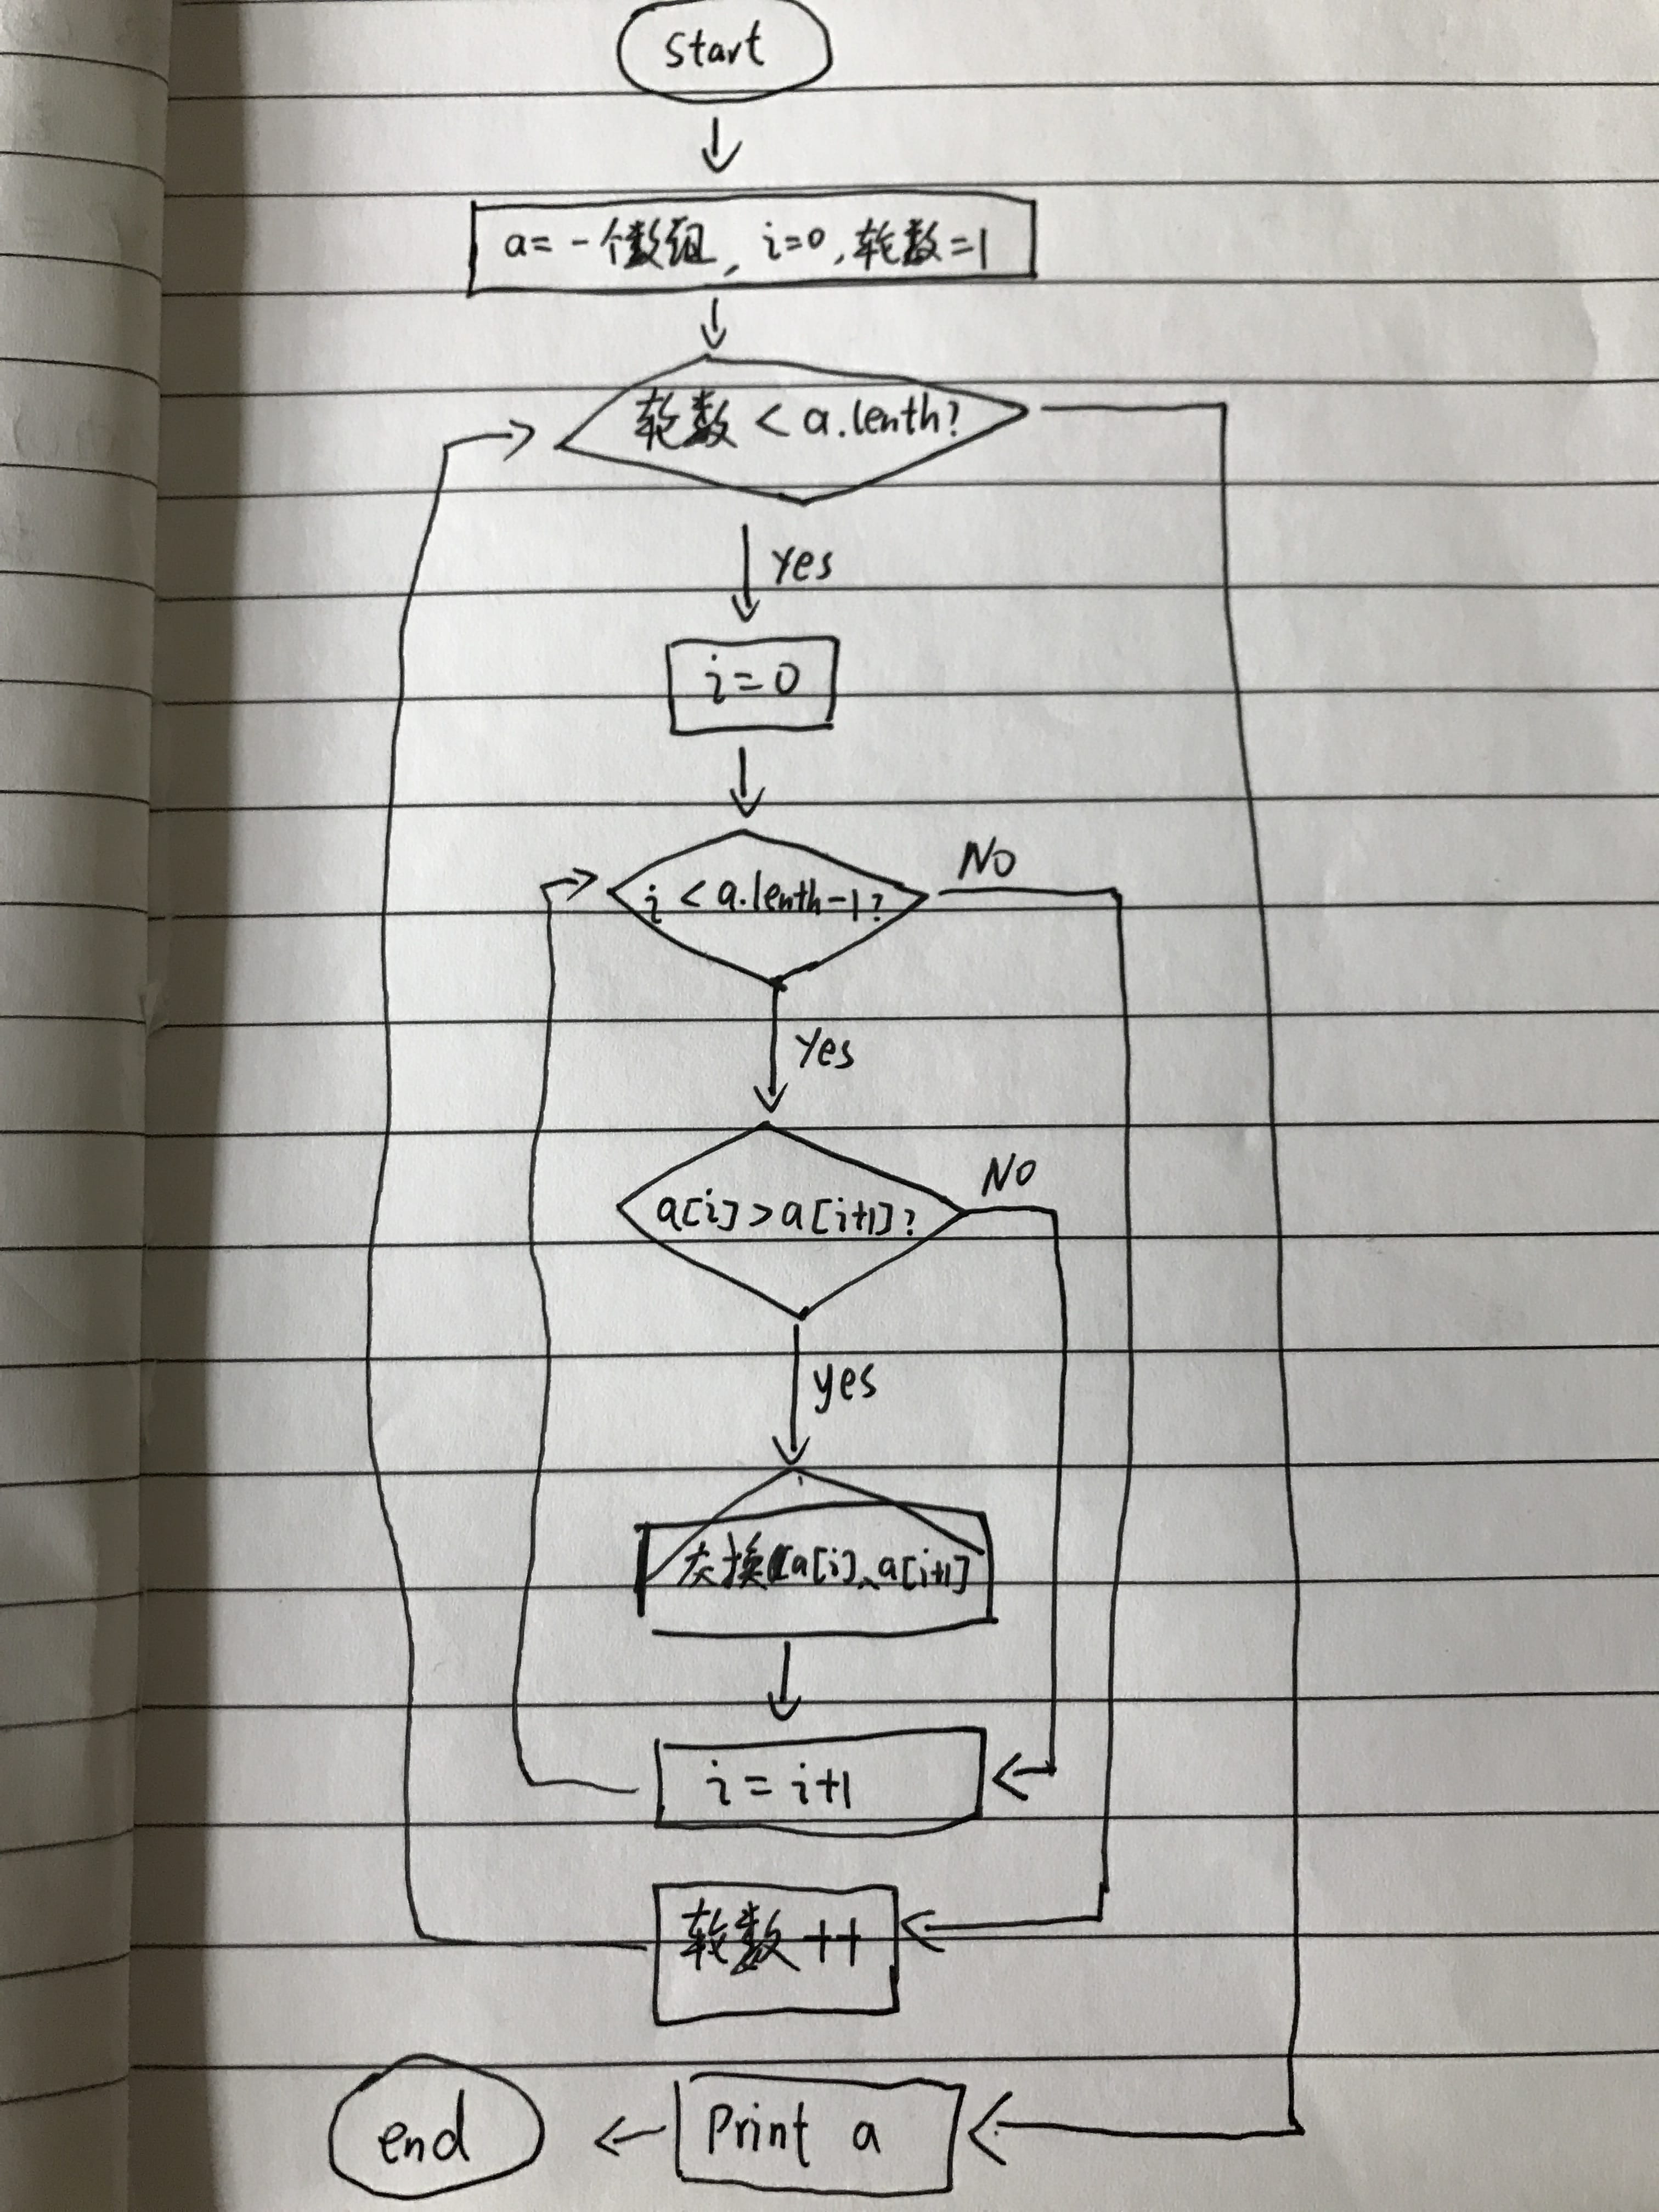 start
a=一个数组, i=0,轮数=1
轮数 < a.lenth?
Yes
i=0
NO
i < a.lenth-1?
Yes
NO
a[i]>a[i+1]?
yes
换 a[i]、a[i+1]
i = i+1
轮数 ++
end
Print a